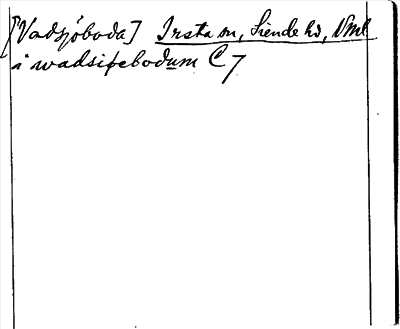 [Vadsjöboda] Irsta sn, Siende hd, Vml
i wadsiþebodum C 7